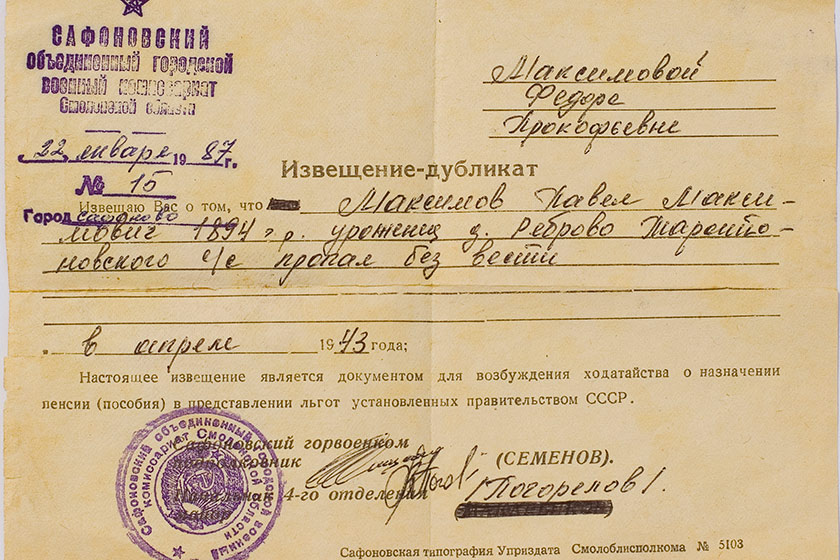 САФОНОВСКИЙ
Объединенный городской
ВОЕННЫЙ КОМИССАРИАТ
Смоленской области
22 января 1987 г.
№ 15
Город Сафоново
Максимовой
Федоре
Прокофьевне
Извещение-дубликат
Извещаю Вас о том, что Максимов Павел Макси-
мович 1894 г. р. урожениц д. Реброво
новского с/с пропал без вести
в апреле 1943 года;
Настоящее извещение является документом для возбуждения ходатайства о назначении
пенсии (пособия) в представлении льгот установленных правительством СССР.
Сафоновский горвоенком
подполковник
(СЕМЕНОВ).
Начальник 4-го отделения
майор
/Погорелов/.
Сафоновский объединенный городской военный
комиссариат Смоленской области
Сафоновская типография Уприздата Смолоблисполкома № 5103